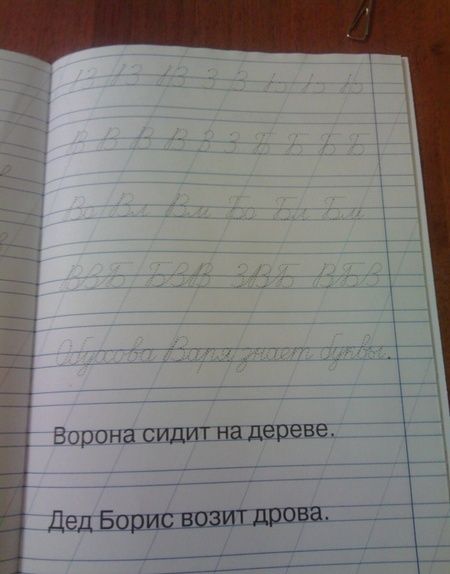 В В В З З Б Б Б
В В В В В З Б Б Б Б
Во Вл Вм Бо Бл Бм
ВВБ БВВ ЗВБ ВБВ
Обухова Варя знает буквы.
Ворона сидит на дереве.
Дед Борис возит дрова.